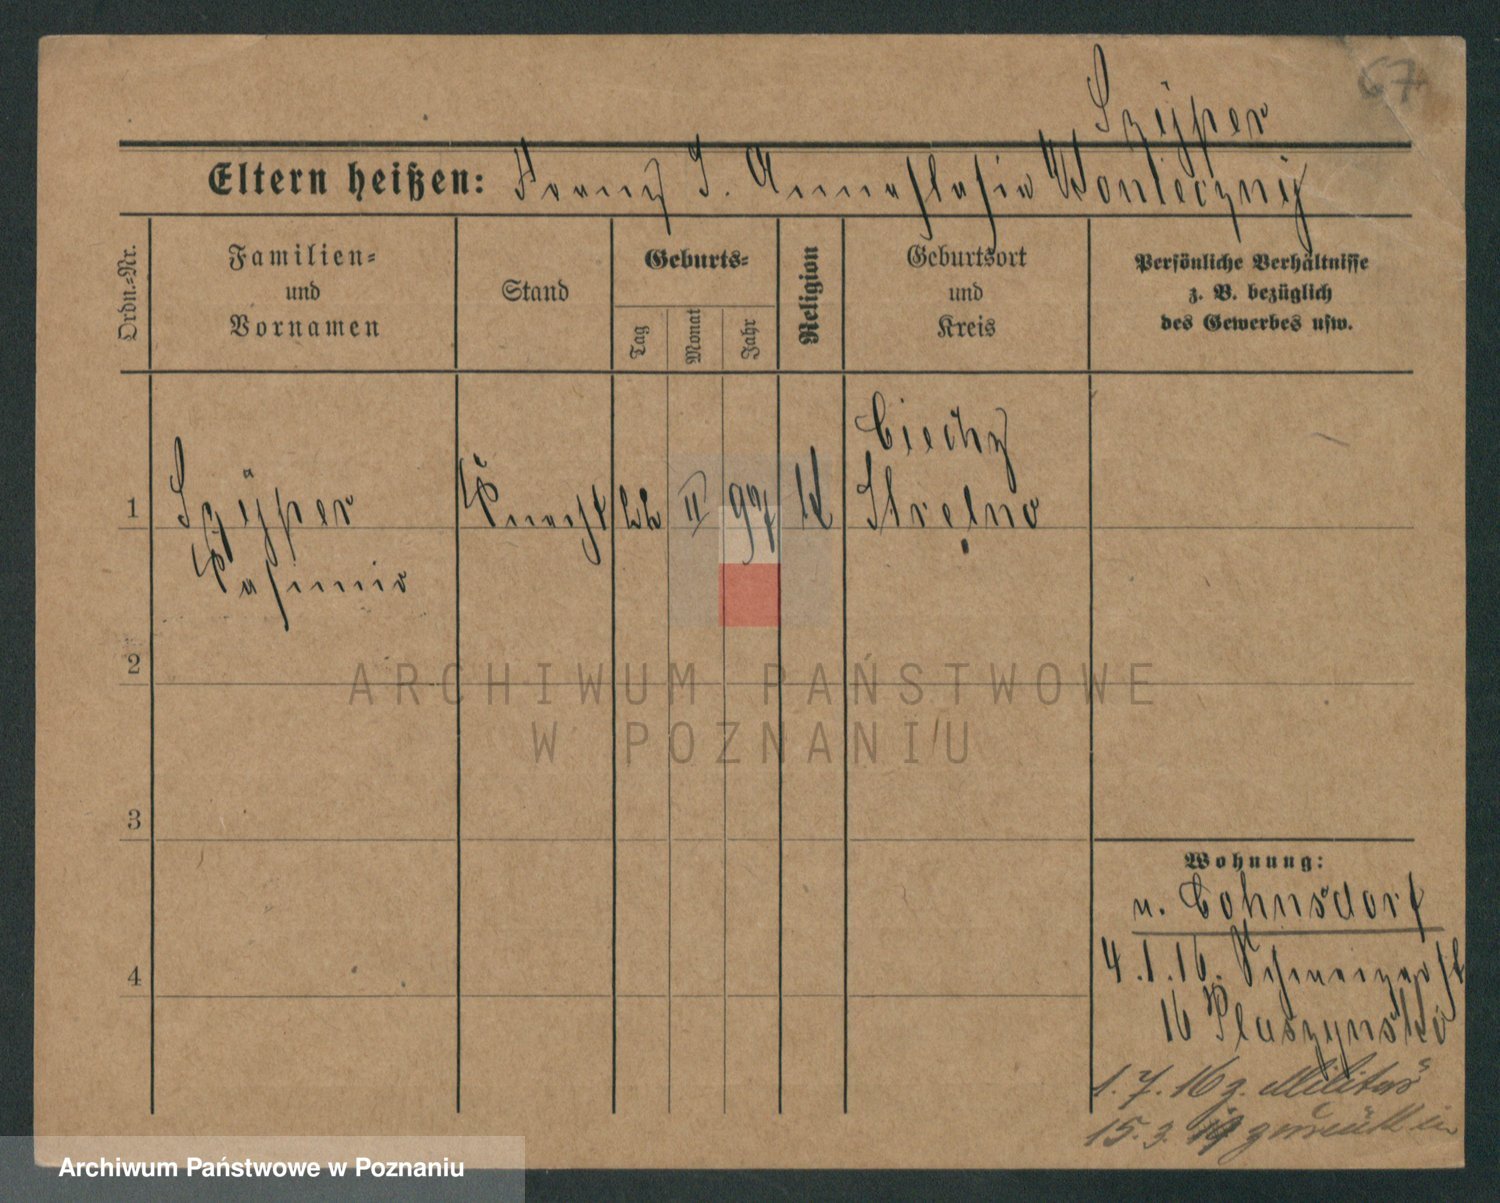 67
Szÿper
Eltern heißen: Franz J. Annastasia Konieczny
Ordn.-Nr.
Familien-
und
Vornamen
Stand
Geburts-
Tag
Monat
Jahr
Religion
Geburtsort
und
Kreis
Persönliche Verhältnisse
z. B. bezüglich
des Gewerbes usw.
Ciechz
1 Szÿper Knecht II 97 Strelno
Kasimir
2
3
4
Wohnung:
n. Cohnsdorf
4.1.16.
16
1.7.16 z. Militär
15.3.19 zurück
ARCHIWUM PAŃSTWOWE
W POZNANIU
Archiwum Państwowe w Poznaniu